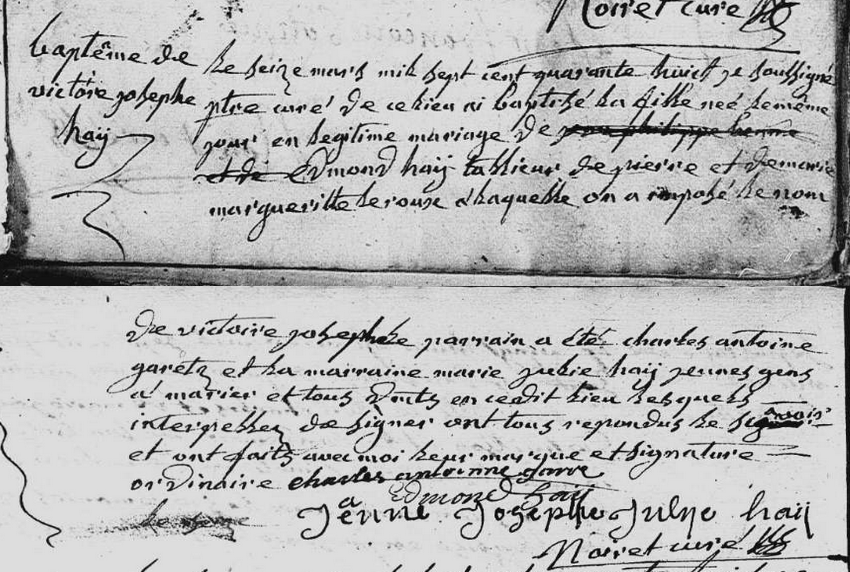 Noiret curé
baptême de
victoire josephe
haÿ
Le seize mars mil sept cent quarante huict je soussigné
ptre curé de ce lieu ai baptisé la fille neé le même
jour en legitime mariage de jean philippe
et de Edmond haÿ tailleur de pierre et de marie
margueritte leroux a laquelle on a imposé le nom
de victoire josephe le parrain a été charles antoine
garetz et la marraine marie julie haÿ jeunes gens
a marier et tous dmts en cedit lieu lesquels
interpellez de signer ont tous repondus le sçavoir
et ont faits avec moi leur marque et signature
ordinaire charles antoinne
Edmond haÿ
Jenne Josephe Julye haÿ
Noiret curé